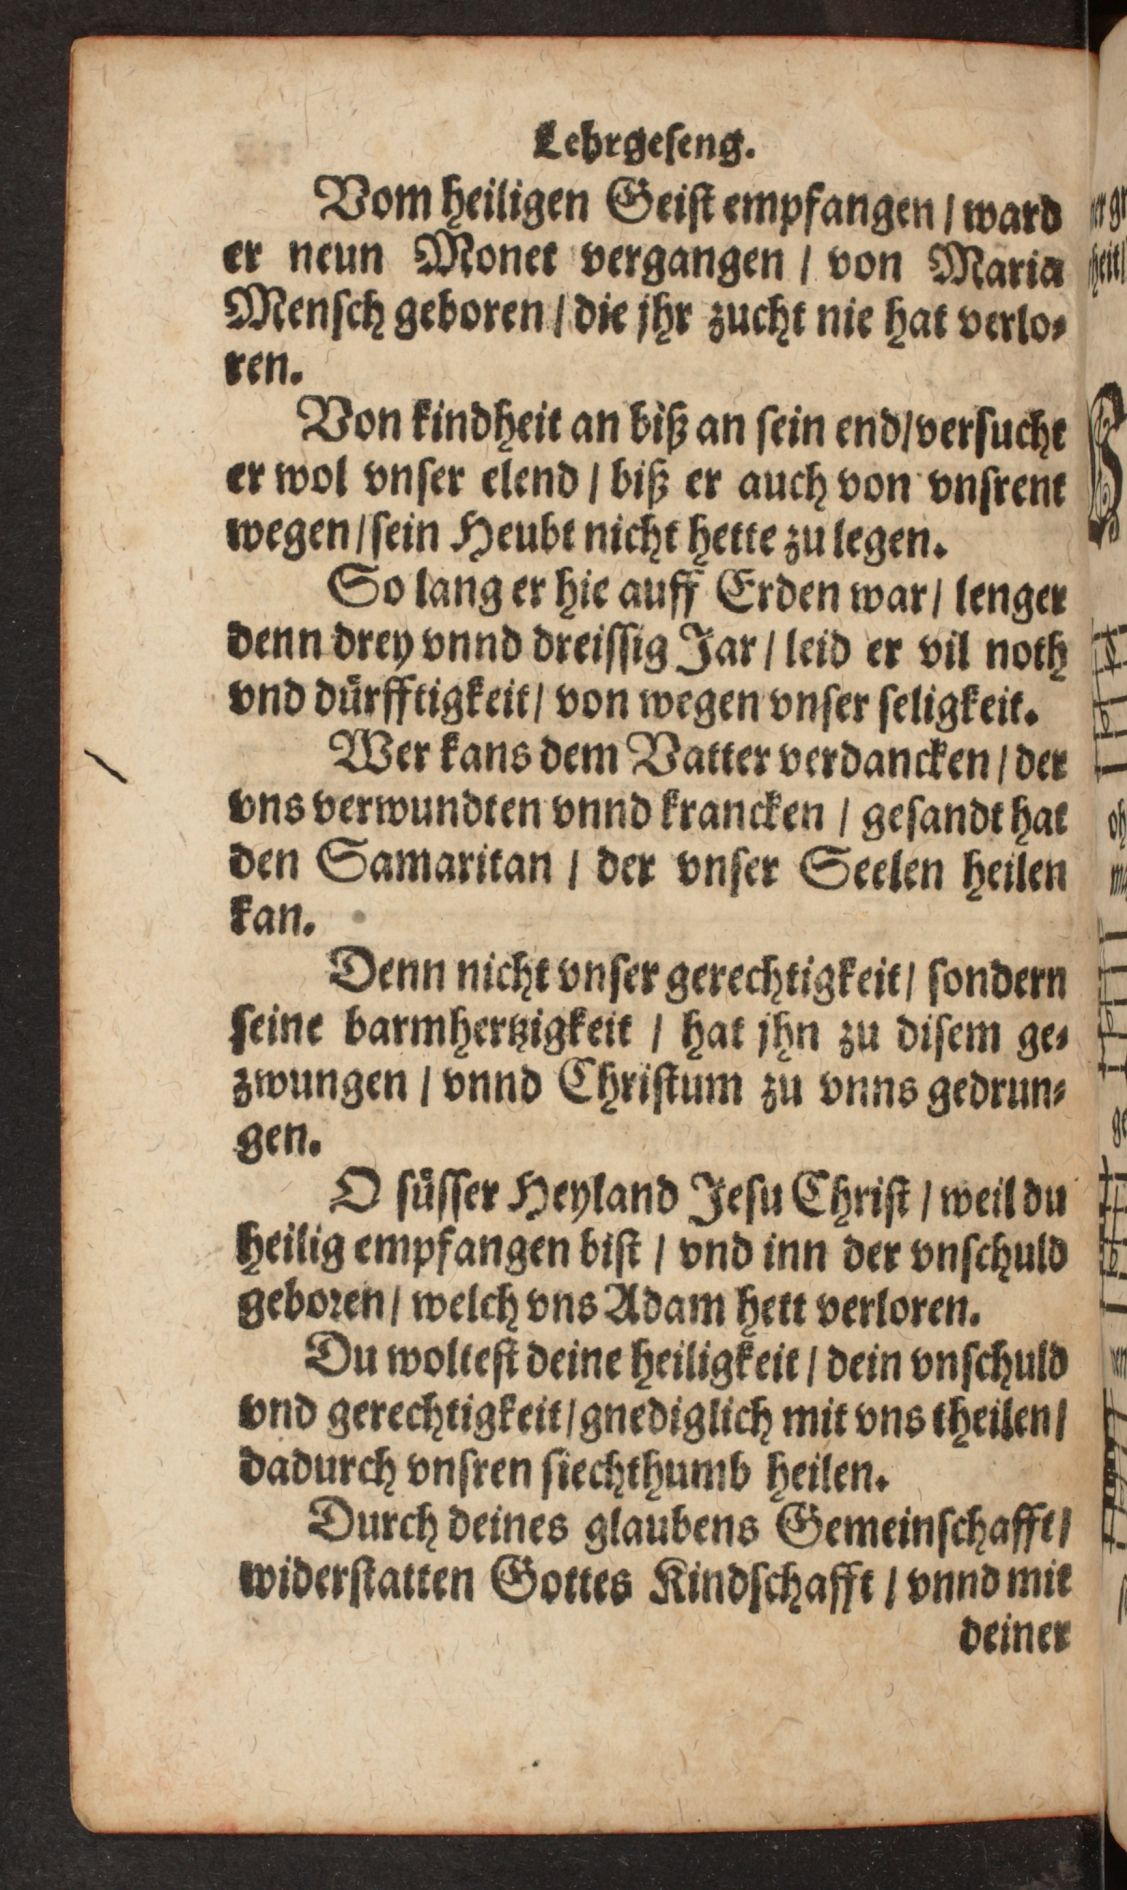 Lehrgeseng.
Vom heiligen Geist empfangen / ward
er neun Monet vergangen / von Maria
Mensch geboren / die jhr zucht nie hat verlo-
ren.
Von kindheit an biß an sein end / versucht
er wol vnser elend / biß er auch von vnsrent
wegen / sein Heubt nicht hette zu legen.
So lang er hie auff Erden war / lenger
denn drey vnnd dreissig Jar / leid er vil noth
vnd dürfftigkeit / von wegen vnser seligkeit.
Wer kans dem Vatter verdancken / der
vns verwundten vnnd krancken / gesandt hat
den Samaritan / der vnser Seelen heilen
kan.
Denn nicht vnser gerechtigkeit / sondern
seine barmhertzigkeit / hat jhn zu disem ge-
zwungen / vnnd Christum zu vnns gedrun-
gen.
O süsser Heyland Jesu Christ / weil du
heilig empfangen bist / vnd inn der vnschuld
geboren / welch vns Adam hett verloren.
Du woltest deine heiligkeit / dein vnschuld
vnd gerechtigkeit / gnediglich mit vns theilen /
dadurch vnsren siechthumb heilen.
Durch deines glaubens Gemeinschafft /
widerstatten Gottes Kindschafft / vnnd mit
deiner